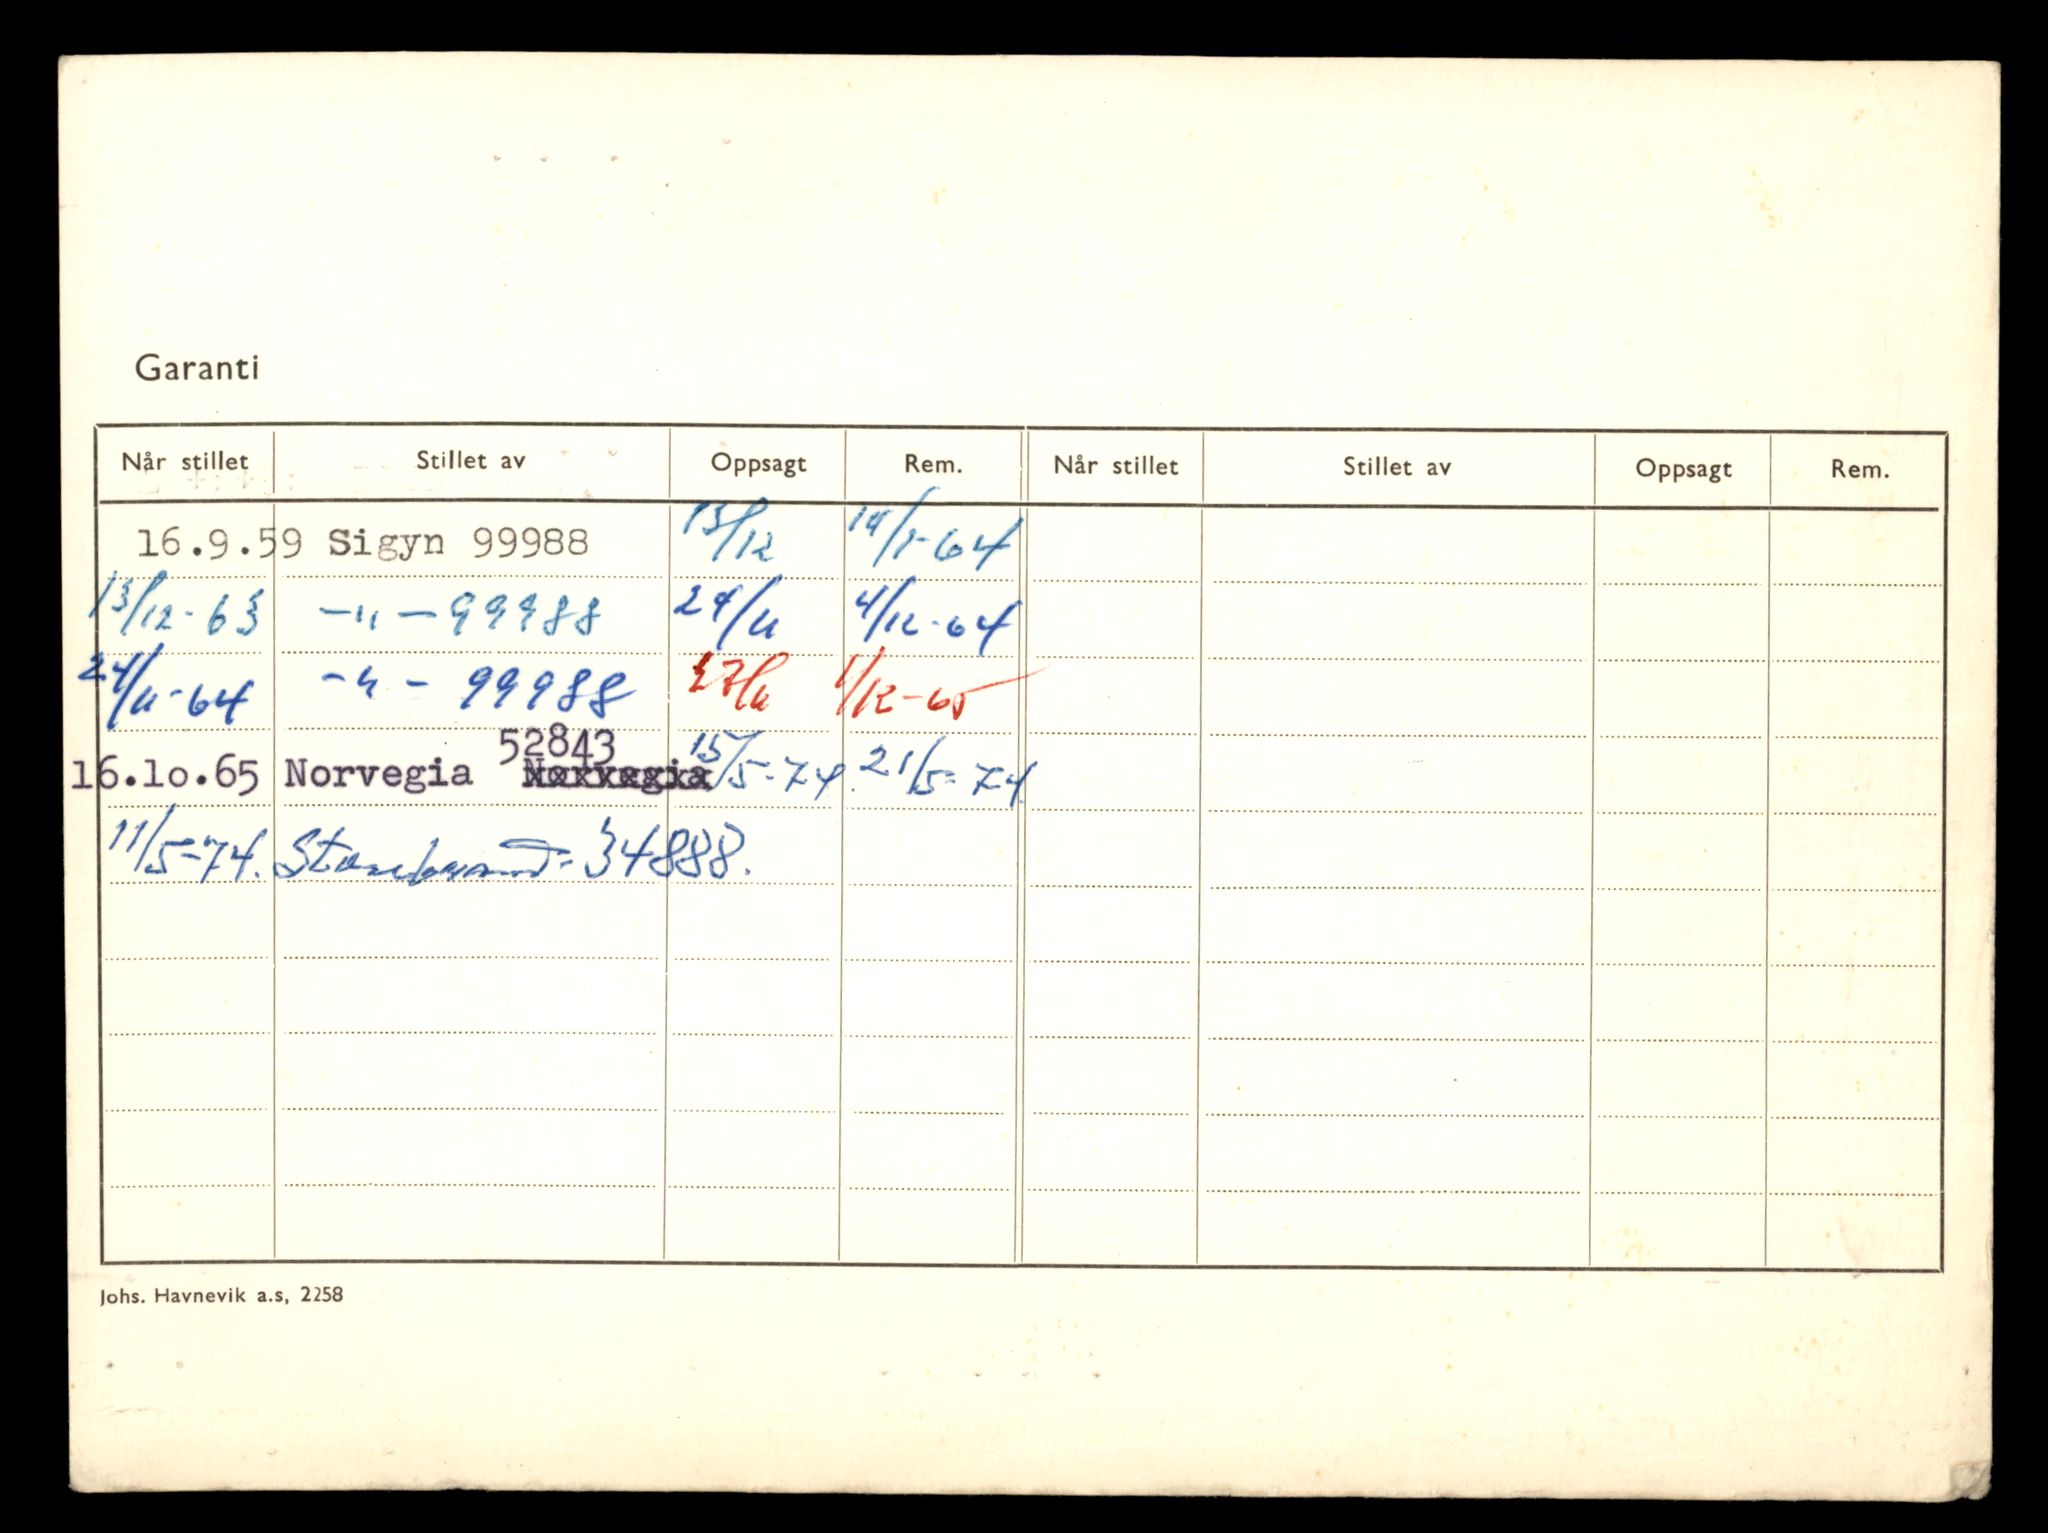 Garanti
Når stillet Stillet av Oppsagt Rem. Når stillet Stillet av Oppsagt Rem.
16.9.59 Sigyn 99988 13/12 14/1-64
13/12-63 -"- 99988 24/11 4/12-64
24/11-64 -"- 99988 1/12-65
52843
16.10.65 Norvegia 15/5-74. 21/5-74.
11/5-74. Storebrand- 34888.
Johs. Havnevik a.s, 2258